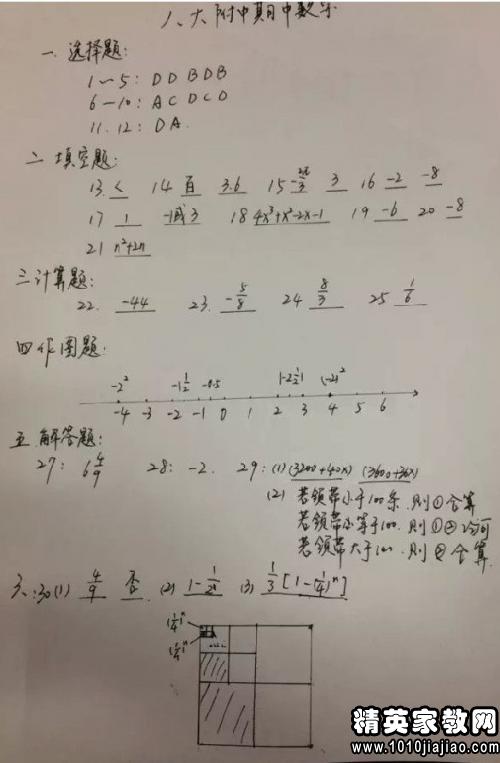 人大附中期中数学
一. 选择题:
1~5: D D B D B
6—10: A C D C D
11. 12: D A.
二. 填空题:
13. < 14 百 3.6 15 3 16 -2 -8
17 1 -1或3 18 4x³+x²-2x-1 19 -6 20 -8
21 n²+2n
三 计算题:
22. -44 23. -5/8 24 8/3 25 1/6
四 作图题:
-2² -1 1/2 -0.5 |-2 1/2| (-2)²
-4 -3 -2 -1 0 1 2 3 4 5 6
五. 解答题:
27: 6 4/9 28: -2. 29: (1) (3200+40x) (3600+36x)
(2) 若领带小于100条, 则①合算
若领带等于100, 则①②均可
若领带大于100, 则②合算.
六: 30 (1) 4/9 否 (2) 1-1/2ⁿ (3) 1/3[1-(1/4)ⁿ]
(1/4)ⁿ
(1/4)ⁿ
精英家教网
www.1010jiajiao.com